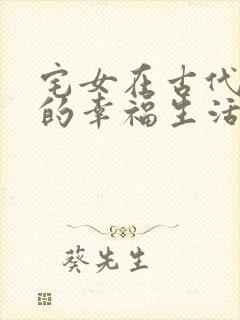 宅女在古代
的幸福生活
葵先生